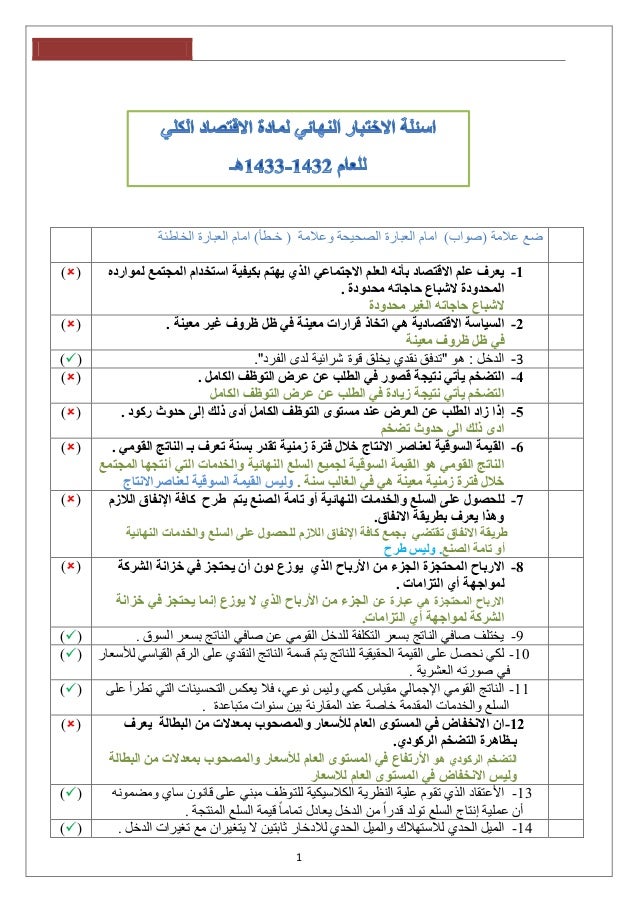 اسئلة الاختبار النهائي لمادة الاقتصاد الكلي
للعام 1432-1433هـ
ضع علامة (صواب) امام العبارة الصحيحة وعلامة ( خطأ) امام العبارة الخاطئة
1- يعرف علم الاقتصاد بأنه العلم الاجتماعي الذي يهتم بكيفية استخدام المجتمع لموارده (×)
المحدودة لاشباع حاجاته محدودة .
لاشباع حاجاته الغير محدودة
2- السياسة الاقتصادية هي اتخاذ قرارات معينة في ظل ظروف غير معينة . (×)
في ظل ظروف معينة
3- الدخل : هو "تدفق نقدي يخلق قوة شرائية لدى الفرد". (✓)
4- التضخم يأتي نتيجة قصور في الطلب عن عرض التوظف الكامل . (×)
التضخم يأتي نتيجة زيادة في الطلب عن عرض التوظف الكامل
5- إذا زاد الطلب عن العرض عند مستوى التوظف الكامل أدى ذلك إلى حدوث ركود . (×)
ادى ذلك الى حدوث تضخم
6- القيمة السوقية لعناصر الانتاج خلال فترة زمنية تقدر بسنة تعرف بـ الناتج القومي . (×)
الناتج القومي هو القيمة السوقية لجميع السلع النهائية والخدمات التي أنتجها المجتمع
خلال فترة زمنية معينة هي في الغالب سنة . وليس القيمة السوقية لعناصرالانتاج
7- للحصول على السلع والخدمات النهائية أو تامة الصنع يتم طرح كافة الإنفاق اللازم (×)
وهذا يعرف بطريقة الانفاق.
طريقة الانفاق تقتضي بجمع كافة الإنفاق اللازم للحصول على السلع والخدمات النهائية
أو تامة الصنع. وليس طرح
8- الارباح المحتجزة الجزء من الأرباح الذي يوزع دون أن يحتجز في خزانة الشركة (×)
لمواجهة أي التزامات .
الارباح المحتجزة هي عبارة عن الجزء من الأرباح الذي لا يوزع إنما يحتجز في خزانة
الشركة لمواجهة أي التزامات.
9- يختلف صافي الناتج بسعر التكلفة للدخل القومي عن صافي الناتج بسعر السوق . (✓)
10- لكي نحصل على القيمة الحقيقية للناتج يتم قسمة الناتج النقدي على الرقم القياسي للأسعار (✓)
في صورته العشرية .
11- الناتج القومي الإجمالي مقياس كمي وليس نوعي، فلا يعكس التحسينات التي تطرأ على (✓)
السلع والخدمات المقدمة خاصة عند المقارنة بين سنوات متباعدة .
12-ان الانخفاض في المستوى العام للأسعار والمصحوب بمعدلات من البطالة يعرف (×)
بـظاهرة التضخم الركودي.
التضخم الركودي هو الأرتفاع في المستوى العام للأسعار والمصحوب بمعدلات من البطالة
وليس الانخفاض في المستوى العام للاسعار
13- الأعتقاد الذي تقوم علية النظرية الكلاسيكية للتوظف مبني على قانون ساي ومضمونه (✓)
أن عملية إنتاج السلع تولد قدراً من الدخل يعادل تماماً قيمة السلع المنتجة .
14- الميل الحدي للاستهلاك والميل الحدي للادخار ثابتين لا يتغيران مع تغيرات الدخل . (✓)
1